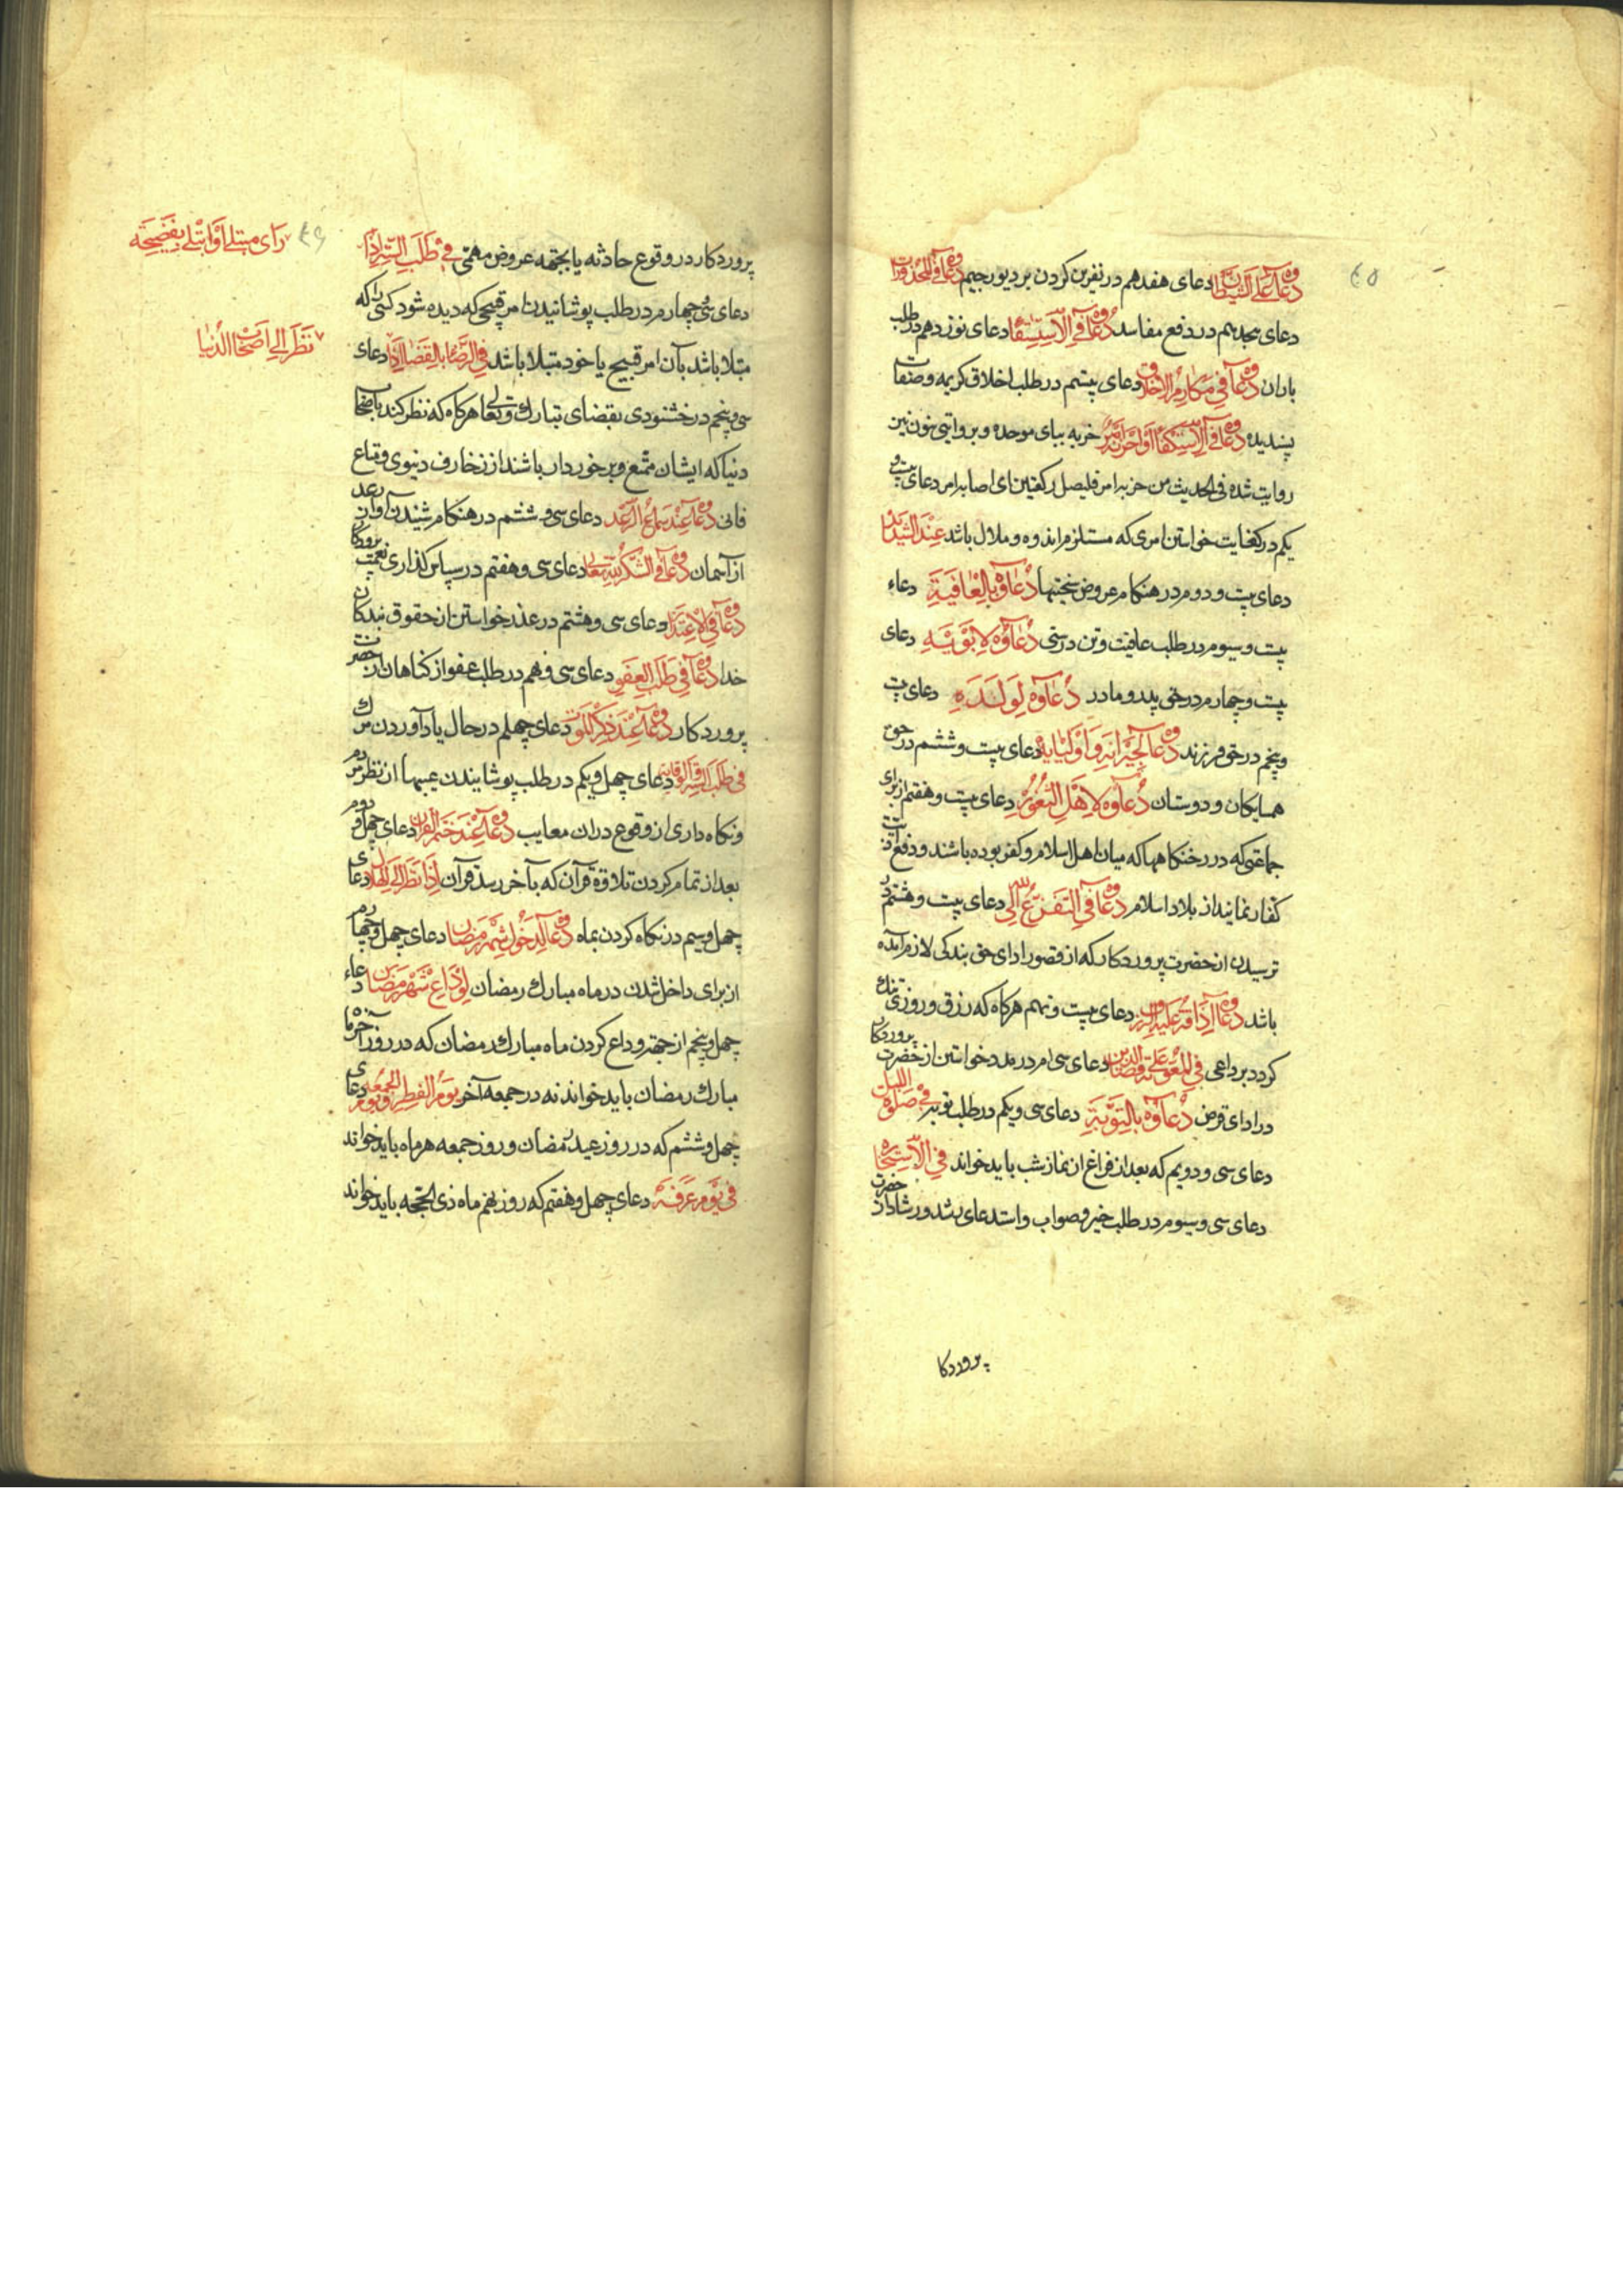 دُعَاؤُهُ عَلَى الشَّيْطَانِ دعای هفدهم در نفرین کردن بر دیو رجیم دُعَاؤُهُ فِي الْمَحْذُورَاتِ
دعای هجدهم در دفع مفاسد دُعَاؤُهُ فِي الْاِسْتِسْقَا دعای نوزدهم در طلب
باران دُعَاؤُهُ فِي مَكَارِمِ الْاَخْلَاقِ دعای بیستم در طلب اخلاق کریمه و صفات
پسندیده دُعَاؤُهُ فِي الْاِسْتِكْفَا اِذَا حَزَنَهُ اَمْرٌ حزبه ببای موحده و بروایتی نون نیز
روایت شده فی الحدیث من حزبه امر فلیصل رکعتین ای اصابه امر دعای بیست و
یکم در کفایت خواستن امری که مستلزم اندوه و ملال باشد عِنْدَ الشَّدَائِدِ
دعای بیست و دوم در هنکام عروض سختیها دُعَاؤُهُ بِالْعَافِيَةِ دعاء
بیست و سیوم در طلب عافیت و تن درستی دُعَاؤُهُ لِاَبَوَيْهِ دعای
بیست و چهارم در حق پدر و مادر دُعَاؤُهُ لِوَلَدِهِ دعای بیست
و پنجم در حق فرزند دُعَاؤُهُ لِجِيْرَانِهِ وَاَوْلِيَائِهِ دعای بیست و ششم در حق
همسایکان و دوستان دُعَاؤُهُ لِاَهْلِ الثُّغُوْرِ دعای بیست و هفتم از برای
جماعتی که در رخنکاهها که میان اهل اسلام و کفر بوده باشند و دفع اذیت
کفار نمایند از بلاد اسلام دُعَاؤُهُ فِي التَّفَزُّعِ اِلَى اللّٰهِ دعای بیست و هشتم در
ترسیدن از حضرت پروردکار که از قصور ادای حق بندکی لازم آمده
باشد دُعَاؤُهُ اِذَا قُتِّرَ عَلَيْهِ الرِّزْقُ دعای بیست و نهم هرکاه که رزق و روزی تنک
کردد بر داعی فِي الْمَعُوْنَةِ عَلٰى قَضَاءِ الدَّيْنِ دعای سی ام در مدد خواستن از حضرت پروردکار
در ادای قرض دُعَاؤُهُ بِالتَّوْبَةِ دعای سی و یکم در طلب توبه فِي صَلٰوةِ اللَّيْلِ
دعای سی و دویم که بعد از فراغ از نماز شب باید خواند فِي الْاِسْتِخَارَةِ
دعای سی و سیوم در طلب خیر و صواب و استدعای رشد و رشاد از حضرت
پروردکا
پروردکار در وقوع حادثه یا بجهة عروض مهمی فِي طَلَبِ السَّتْرِ اِذَا
رَاٰى مُبْتَلًى اَوِ ابْتُلِيَ بِفَضِيْحَةٍ
دعای سی و چهارم در طلب پوشانیدن امر قبیحی که دیده شود کسی را که
مبتلا باشد بآن امر قبیح یا خود مبتلا باشد فِي الرِّضَا بِالْقَضَا اِذَا دعای
نَظَرَ اِلٰى اَصْحَابِ الدُّنْيَا
سی و پنجم در خشنودی بقضای تبارک و تعالی هرکاه که نظر کند باصحاب
دنیا که ایشان متمتع و برخوردار باشند از زخارف دنیوی و متاع
فانی دُعَاؤُهُ عِنْدَ سَمَاعِ الرَّعْدِ دعای سی و ششم در هنکام شنیدن آواز رعد
از آسمان دُعَاؤُهُ فِي الشُّكْرِ لِلّٰهِ تَعَالٰى دعای سی و هفتم در سپاس کذاری نعمت پروردکار
دُعَاؤُهُ فِي الْاِعْتِذَارِ دعای سی و هشتم در عذر خواستن از حقوق بندکان
خدا دُعَاؤُهُ فِي طَلَبِ الْعَفْوِ دعای سی و نهم در طلب عفو از کناهان از حضرت
پروردکار دُعَاؤُهُ عِنْدَ ذِكْرِ الْمَوْتِ دعای چهلم در حال یاد آوردن مرک
فِي طَلَبِ السَّتْرِ وَالْوِقَايَةِ دعای چهل و یکم در طلب پوشانیدن عیبها از نظر مردم
و نکاه داری از وقوع در ان معایب دُعَاؤُهُ عِنْدَ خَتْمِ الْقُرْاٰنِ دعای چهل و دوم
بعد از تمام کردن تلاوة قرآن که بآخر رسد قرآن اِذَا نَظَرَ اِلَى الْهِلَالِ دعای
چهل و سیم در نکاه کردن بماه دُعَاؤُهُ لِدُخُوْلِ شَهْرِ رَمَضَانَ دعای چهل و چهارم
از برای داخل شدن در ماه مبارک رمضان لِوَدَاعِ شَهْرِ رَمَضَانَ دعاء
چهل و پنجم از جهة وداع کردن ماه مبارک رمضان که در روز آخر ماه
مبارک رمضان باید خواند نه در جمعه آخر يَوْمَ الْفِطْرِ وَيَوْمَ الْجُمُعَةِ دعای
چهل و ششم که در روز عید رمضان و روز جمعه هر ماه باید خواند
فِي يَوْمِ عَرَفَةَ دعای چهل و هفتم که روز نهم ماه ذی الحجه باید خواند